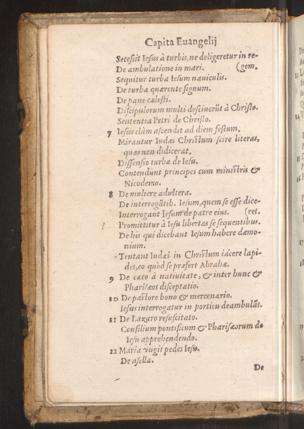 Capita Euangelij
Secessit Iesus à turbis, ne deligeretur in re-
De ambulatione in mari. (gem.
Sequitur turba Iesum nauiculis.
De turba quærente signum.
De pane cælesti.
Discipulorum multi desciuerũt à Christo.
Sententia Petri de Christo.
7 Iesus clàm ascendit ad diem festum.
Mirantur Iudæi Christum scire literas,
quas non didicerat.
Dissensio turbæ de Iesu.
Contendunt principes cum ministris &
Nicodemo.
8 De muliere adultera.
De interrogãtib. Iesum, quem se esse dice-
Interrogant Iesum de patre eius. (ret.
Promittitur à Iesu libertas se sequentibus.
De his qui dicebant Iesum habere dæmo-
nium.
Tentant Iudæi in Christum iácere lapi-
des, eo quòd se præfert Abrahæ.
9 De cæco à natiuitate, & inter hunc &
Pharisæos disceptatio.
10 De pastore bono & mercenario.
Iesus interrogatur in porticu deambulãs.
11 De Lazaro resuscitato.
Consilium pontificum & Pharisæorum de
Iesu apprehendendo.
12 Maria vngit pedes Iesu.
De asella.
De